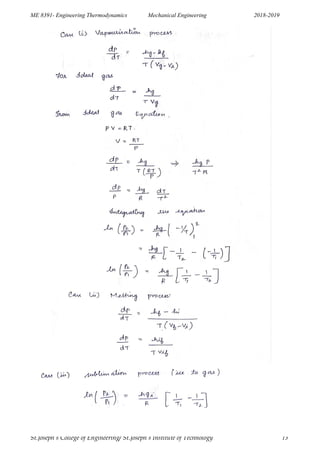 ME 8391- Engineering Thermodynamics Mechanical Engineering 2018-2019
Case (i) Vaporisation process
dP/dT = hg - hf / T (Vg - Vf)
For Ideal gas
dP/dT = hg / T Vg
From Ideal gas Equation,
PV = RT
V = RT/P
dP/dT = hg / T (RT/P) ⇒ hg P / T² R
dP/P = hg/R dT/T²
Integrating the equation
ln (P2/P1) = hg/R { -1/T }₁²
= hg/R [ -1/T2 - (-1/T1) ]
ln (P2/P1) = hg/R [ 1/T1 - 1/T2 ]
Case (ii) Melting process
dP/dT = hf - hi / T (Vf - Vi)
dP/dT = hif / T Vif
Case (iii) sublimation process (ice to gas)
ln (P2/P1) = hgi/R [ 1/T1 - 1/T2 ]
St.Joseph's College of Engineering/ St.Joseph's Institute of Technology 13